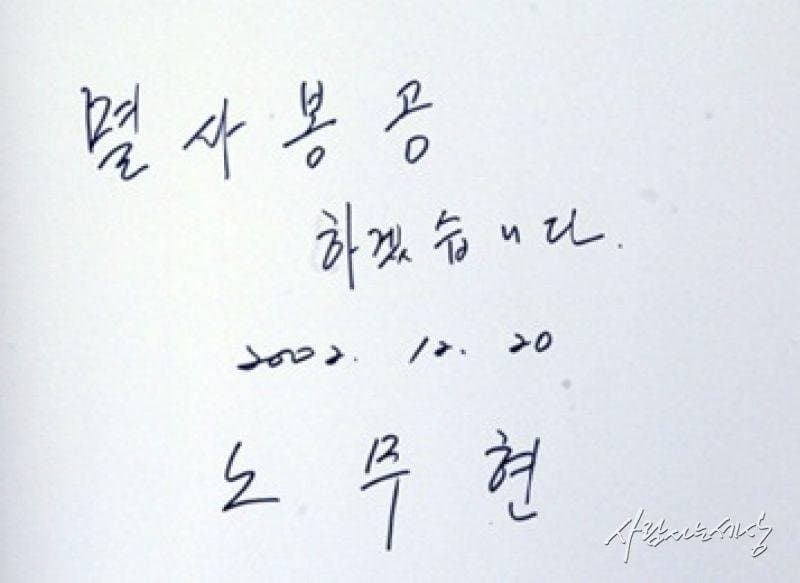 멸사봉공
하겠습니다.
2002. 12. 20
노무현
사람사는세상